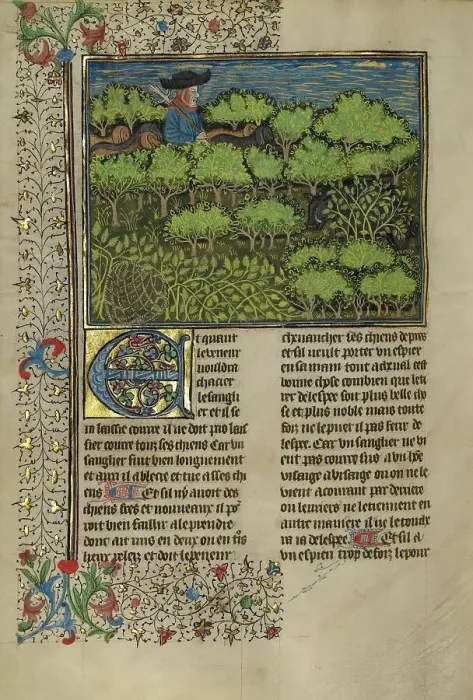 Et quant
le veneur
vouldra
chacier
le sangli
er et il se
en laisse courre il ne doit pas lais
sier courre touz ses chiens Car vn
sanglier fuit bien longuement
et aussi il a blece et tue asses chi
ens Et sil ny auoit des
chiens fres et nouueaux il po
roit bien faillir a le prendre
donc ait mis en deux ou en tiers
leurs relez et doit le veneur
cheuaucher ses chiens de pres
et sil veult porter vn espier
en sa main tout a cheual cest
bonne chose combien que ferir
de lespee soit plus belle cho
se et plus noble mais toute
foiz ne le puet il pas ferir de
lespee Car vn sanglier ne vi
ent pas courre sus a vn hõe
visaige a visaige ou on ne le
vient acourant par derriere
ou leuriers ne le tiennent en
autre maniere il ne le touche
ra ia de lespee Et sil a
vn espieu trop de foiz le pour